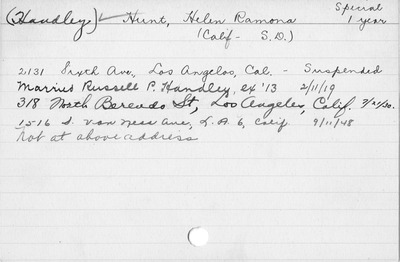 (Handley) ✓ Hunt, Helen Ramona Special 1 year
(Calif - S.D.)
2131 Sixth Ave, Los Angelos, Cal. - Suspended
Marries Russell P. Handley, ex '13 2/11/19
318 North Berendo St, Los Angeles, Calif.
1516 S. Van Ness Ave, L.A. 6, Calif 9/11/48
Not at above address